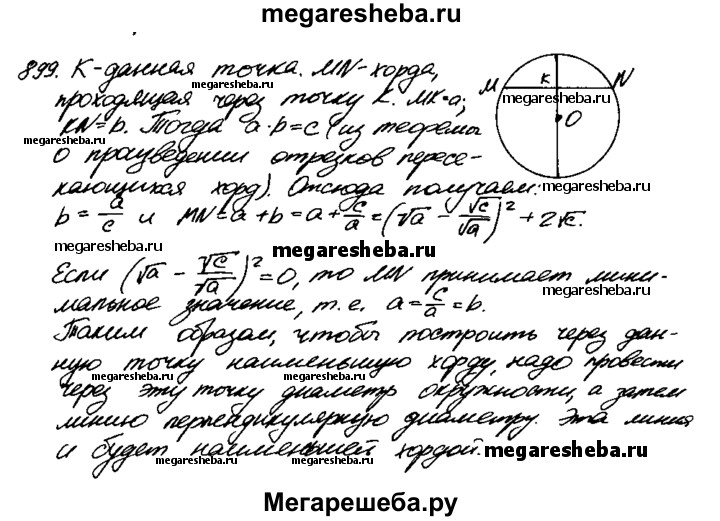 megaresheba.ru
899. K-данная точка. MN-хорда, M K N
megaresheba.ru megaresheba.ru
проходящая через точку K. MK=a; O
KN=b. Тогда a·b=c (из теоремы
megaresheba.ru
о произведении отрезков пересе-
кающихся хорд). Отсюда получаем:
megaresheba.ru
b=a/c и MN=a+b=a+c/a=(√a - √c/√a)²+2√c.
megaresheba.ru megaresheba.ru
Если (√a - √c/√a)²=0, то MN принимает мини-
megaresheba.ru
мальное значение, т.е. a=c/a=b.
Таким образом, чтобы построить через дан-
ную точку наименьшую хорду, надо провести
megaresheba.ru megaresheba.ru
через эту точку диаметр окружности, а затем
линию перпендикулярную диаметру. Эта линия
и будет наименьшей хордой.
megaresheba.ru megaresheba.ru megaresheba.ru
Мегарешеба.ру